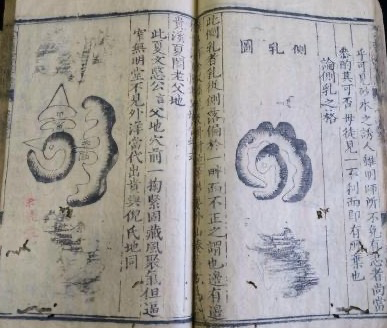 乎可見砂水之誘人雖明師所不免有志者尚當
其可否毋徒見一不利而即有所棄也
論側乳之格
側乳圖
此側乳者乳從側落偏於一畔而不正之謂也邊有
貴溪夏閣老父地
此夏文愍公言父地穴前一掬緊固藏風聚氣但逼
窄無明堂不見外洋當代出貴與倪氏地同